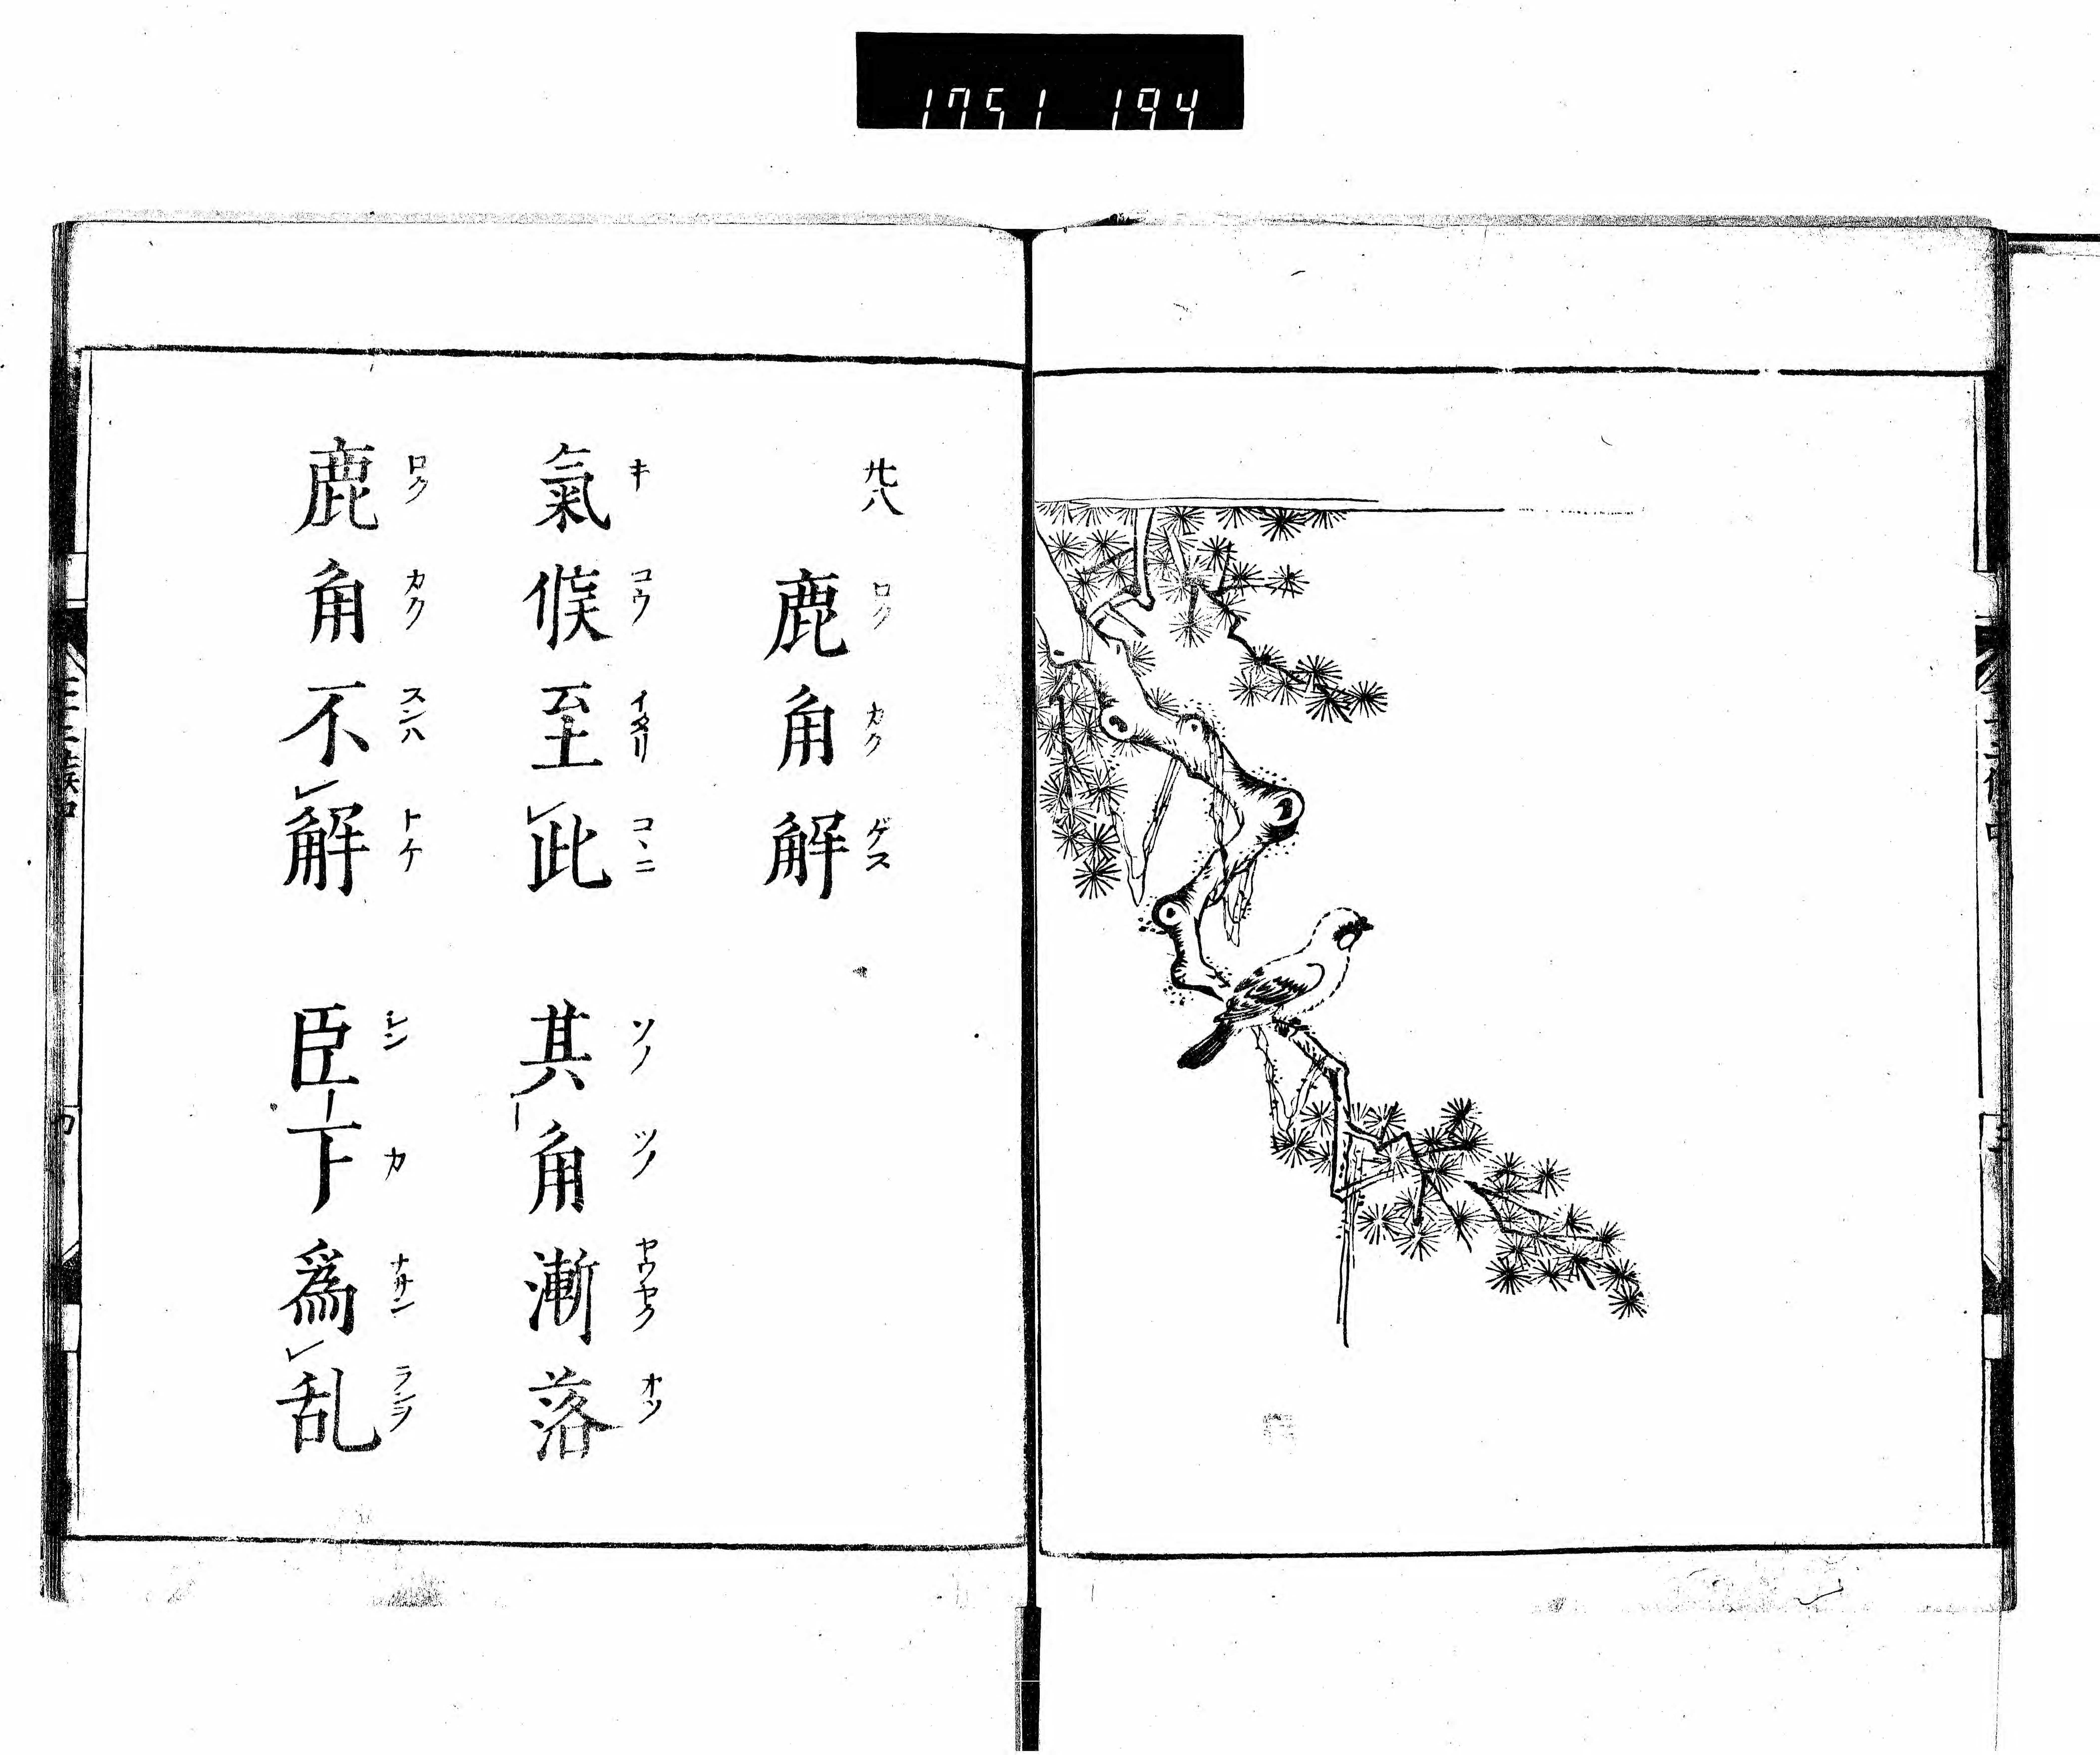 1751 194
廿八
鹿角解
ロクカクゲス
氣候至此 其角漸落
キコウイタリコヽニ ソノツノヤウヤクオツ
鹿角不解 臣下為乱
ロクカクスンハトケ シンカナサンランヲ